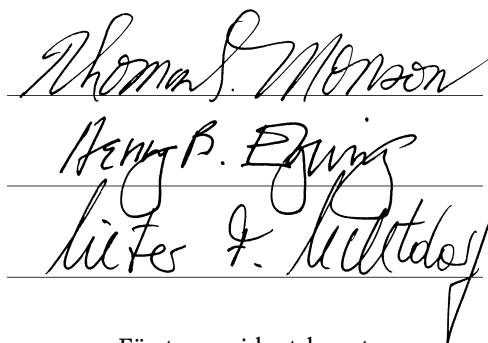 Thomas S. Monson
Henry B. Eyring
Dieter F. Uchtdorf